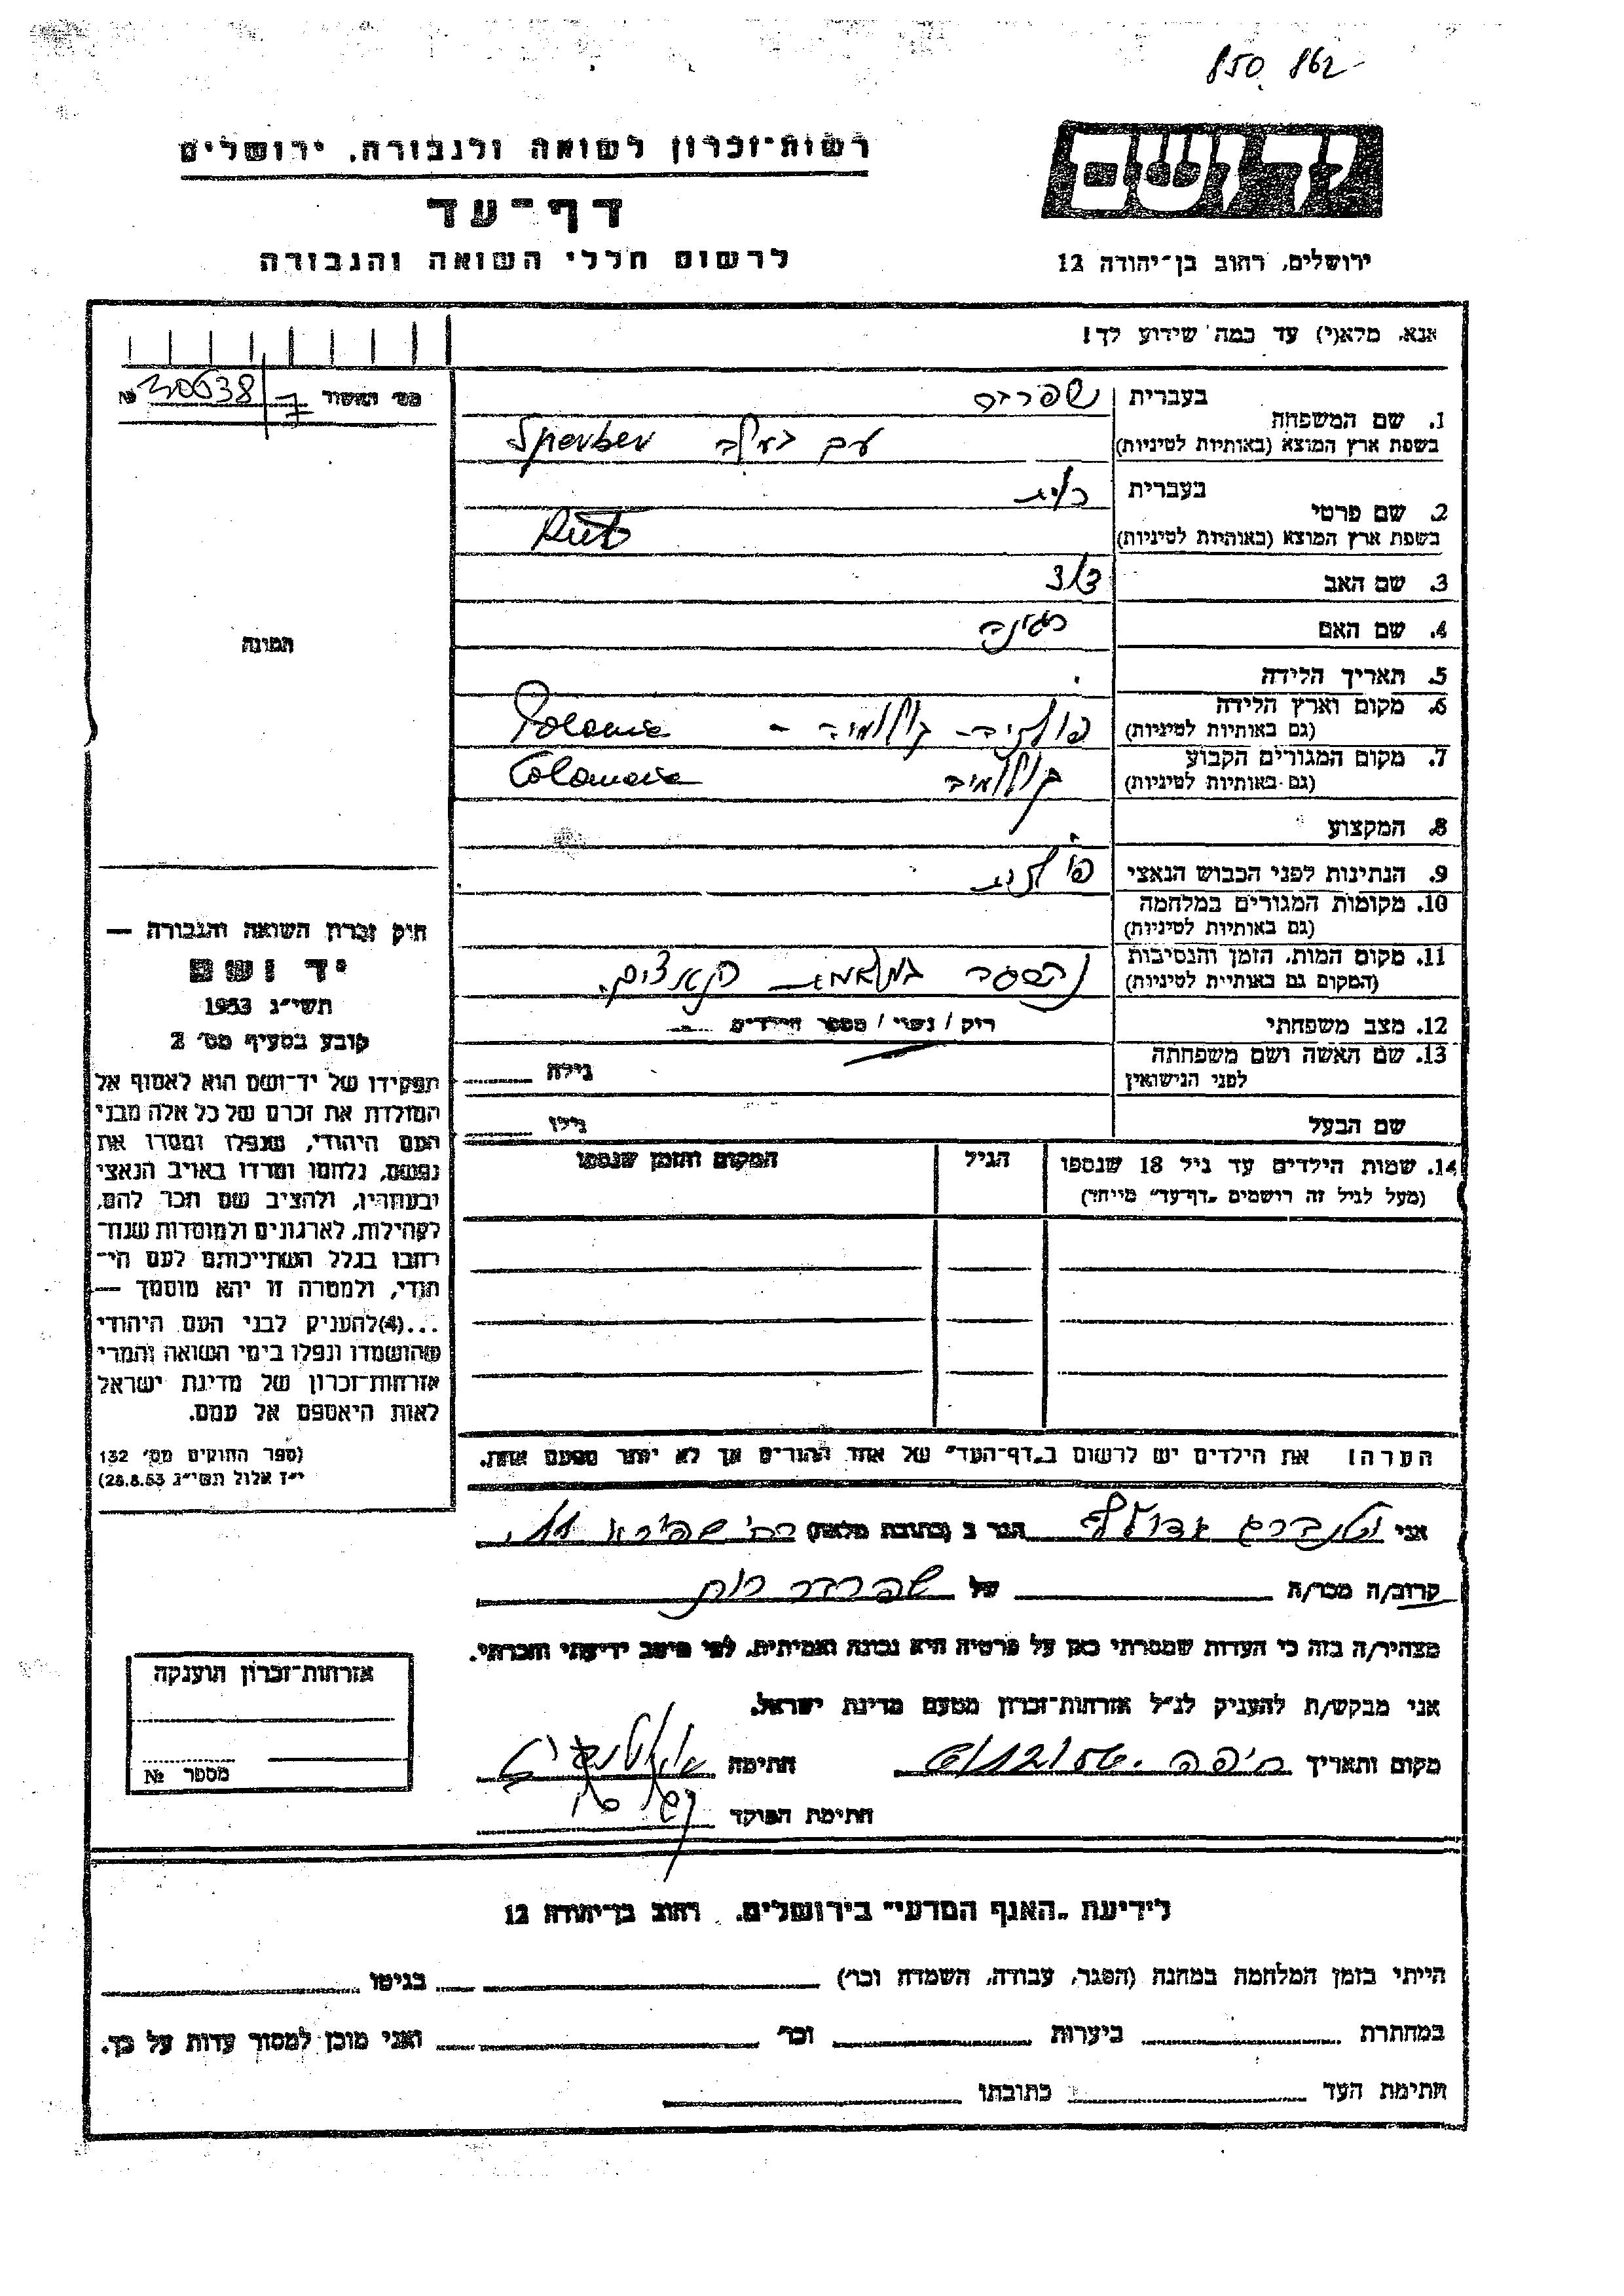 850. 862
רשות־זכרון לשואה ולגבורה, ירושלים
דף־עד
לרשום חללי השואה והגבורה
ירושלים, רחוב בן־יהודה 12
אנא, מלא(י) עד כמה שידוע לך!
מס׳ האשור № 7
1. שם המשפחה
בעברית
בשפת ארץ המוצא (באותיות לטיניות) Sperber
2. שם פרטי
בעברית רות
בשפת ארץ המוצא (באותיות לטיניות) Rut
3. שם האב
4. שם האם רגינה
5. תאריך הלידה
6. מקום וארץ הלידה
(גם באותיות לטיניות) פולניה - קולומיה - Polania
7. מקום המגורים הקבוע
(גם באותיות לטיניות) קולומיה Colomeia
8. המקצוע
9. הנתינות לפני הכבוש הנאצי פולנית
10. מקומות המגורים במלחמה
(גם באותיות לטיניות)
11. מקום המות, הזמן והנסיבות
(המקום גם באותיות לטיניות) נהרגה
12. מצב משפחתי רוק / נשוי / מספר הילדים
13. שם האשה ושם משפחתה
לפני הנישואין גילה
שם הבעל גילו
14. שמות הילדים עד גיל 18 שנספו
(מעל לגיל זה רושמים „דף־עד״ מיוחד)
הגיל
המקום והזמן שנספו
הערה: את הילדים יש לרשום ב„דף־העד״ של אחד ההורים אך לא יותר מפעם אחת.
התמונה
חוק זכרון השואה והגבורה —
יד ושם
תשי״ג 1953
קובע בסעיף מס׳ 2
תפקידו של יד־ושם הוא לאסוף אל
המולדת את זכרם של כל אלה מבני
העם היהודי, שנפלו ומסרו את
נפשם, נלחמו ומרדו באויב הנאצי
ובעוזריו, ולהציב שם וזכר להם,
לקהילות, לארגונים ולמוסדות שנח־
רבו בגלל השתייכותם לעם הי־
הודי, ולמטרה זו יהא מוסמך —
...(4) להעניק לבני העם היהודי
שהושמדו ונפלו בימי השואה והמרי
אזרחות־זכרון של מדינת ישראל
לאות היאספם אל עמם.
(ספר החוקים מס׳ 132
י״ז אלול תשי״ג 28.8.53)
אני הגר ב (כתובת מלאה)
קרוב/ה מכר/ה של שפרבר רות
מצהיר/ה בזה כי העדות שמסרתי כאן על פרטיה היא נכונה ואמיתית, לפי מיטב ידיעתי והכרתי.
אני מבקש/ת להעניק לנ״ל אזרחות־זכרון מטעם מדינת ישראל.
מקום ותאריך חיפה חתימה
חתימת הפוקד
אזרחות־זכרון הוענקה
מספר №
לידיעת „האגף המדעי״ בירושלים, רחוב בן־יהודה 12
הייתי בזמן המלחמה במחנה (הסגר, עבודה, השמדה וכו׳) בגיטו
במחתרת ביערות וכו׳ ואני מוכן למסור עדות על כך.
חתימת העד כתובתו